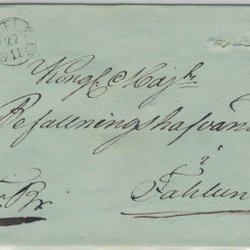 27
11
Kongl. Maj:ts
Befallningshafvan
i
Fahlun
Fr. Br.